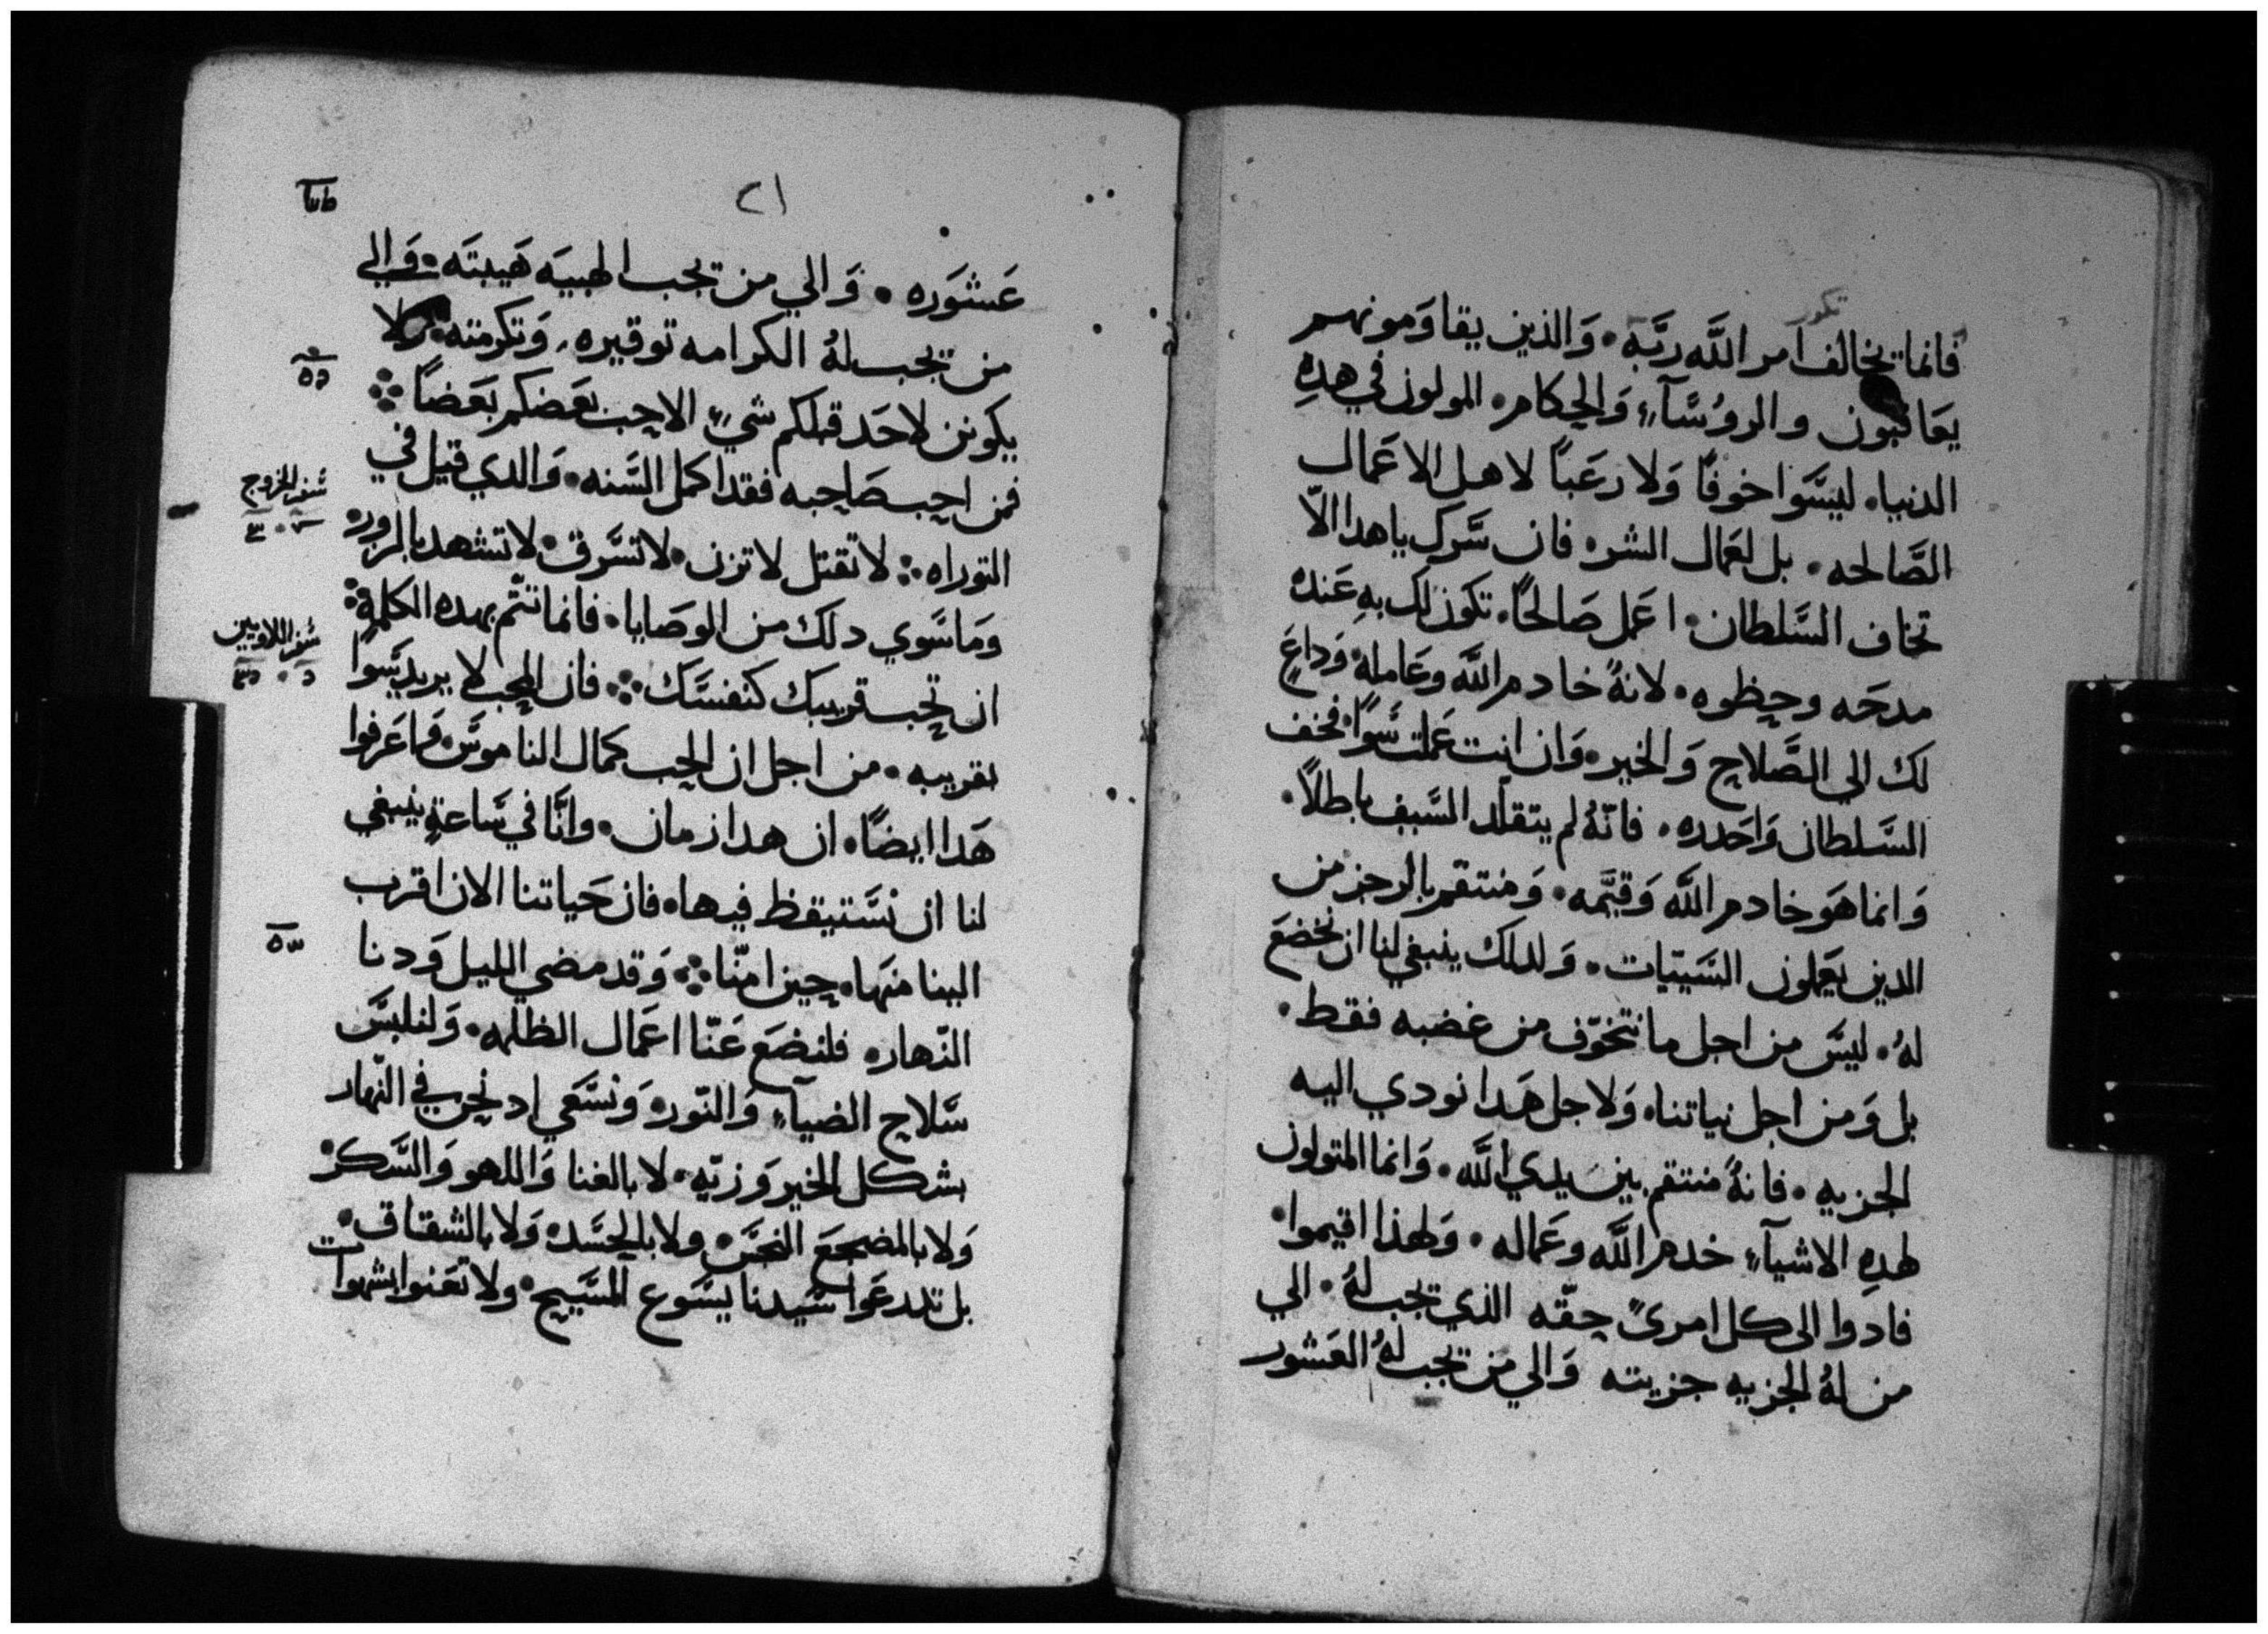 تكور
فانما تخالف امر اللَّه ربَّه • وَالذين يقاوَمونهم
يعَاقبون والروُسَّآءِ وَالحكام • المولون في هدهِ
الدنيا • ليسَّوا خوفًا وَلا رعَبًا لاهل الاعَمال
الصَّالحه • بل لعَمال الشر • فان سَّرك ياهدا الاّ
تخاف السَّلطان • اعَمل صَالحًا • تكون لك بهِ عَنده
مدحَه وحظوه • لانهُ خادم اللَّه وعَامله • وَداعٍ
لك الي الصَّلاح وَالخير • وَان انت عَملت سَّوًا فخف
السَّلطان وَاحَدره • فانّهُ لم يتقلّد السَّيف باطلًا •
وَانما هَو خادم اللَّه وَقيَّمه • وَمنتقم بالرجز من
الدين يعَملون السَّيّيات • وَلدلك ينبغي لنا ان نخضعَ
لهُ • ليسَّ من اجل ما نتخوّف من غضبه فقط •
بل وَمن اجل نياتنا • وَلاجل هَدا نودي اليه
الجزيه • فانهُ منتقم بين يدي اللَّه • وَانما المتولون
لهدهِ الاشيآءِ خدم اللَّه وعَماله • وَلهذا اقيموا •
فادوا الى كل امرىً حقّه الذي تجب لهُ • الي
من لهُ الجزيه جزيته وَالي من تجب لهُ العَشور
٢١
عَشوَره • وَالي من تجب الهيبَه هَيبتَه • وَالي
من تجب لهُ الكرامه توقيره • وَتكرمته • ولا
يكونن لاحَد قبلكم شيءٍ الا حب بعَضكم بعَضًا
فمن احب صَاحبه فقد اكمل السَّنه • وَالدي قيل في
سَفر الخروج
التوراه لا تقتل لا تزن • لا تسَّرق • لا تشهد بالزور •
وَما سَّوي دلك من الوصَايا • فانما تتّم بهده الكلمةِ
سَفر اللاويين
ان تحب قريبك كنفسَّك فان المحب لا يريد سَّوا
بقريبه • من اجل ان الحب كمال الناموسَّ • وَاعَرفوا
هَدا ايضًا • ان هدا زمان • وانَّا في سَّاعةٍ ينبغي
لنا ان نسَّتيقظ فيها • فان حَياتنا الان اقرب
الينا منهَا • حين امنّا وَقد مضي الليل وَدنا
النّهار • فلنضعَ عَنّا اعَمال الظلمه • وَلنلبسَّ
سَّلاح الضيآءِ وَالنّور • وَنسَّعَي اد نحن في النّهار
بشكل الخير وَزيّهِ • لا بالغنا وَاللهو وَالسَّكر •
وَلا بالمضجعَ النجسَّ • ولا بالحسَّد • وَلا بالشقاق •
بل تدرعَوا سَّيدنا يسَّوع المسَّيح • ولا تعَنوا بشهوات